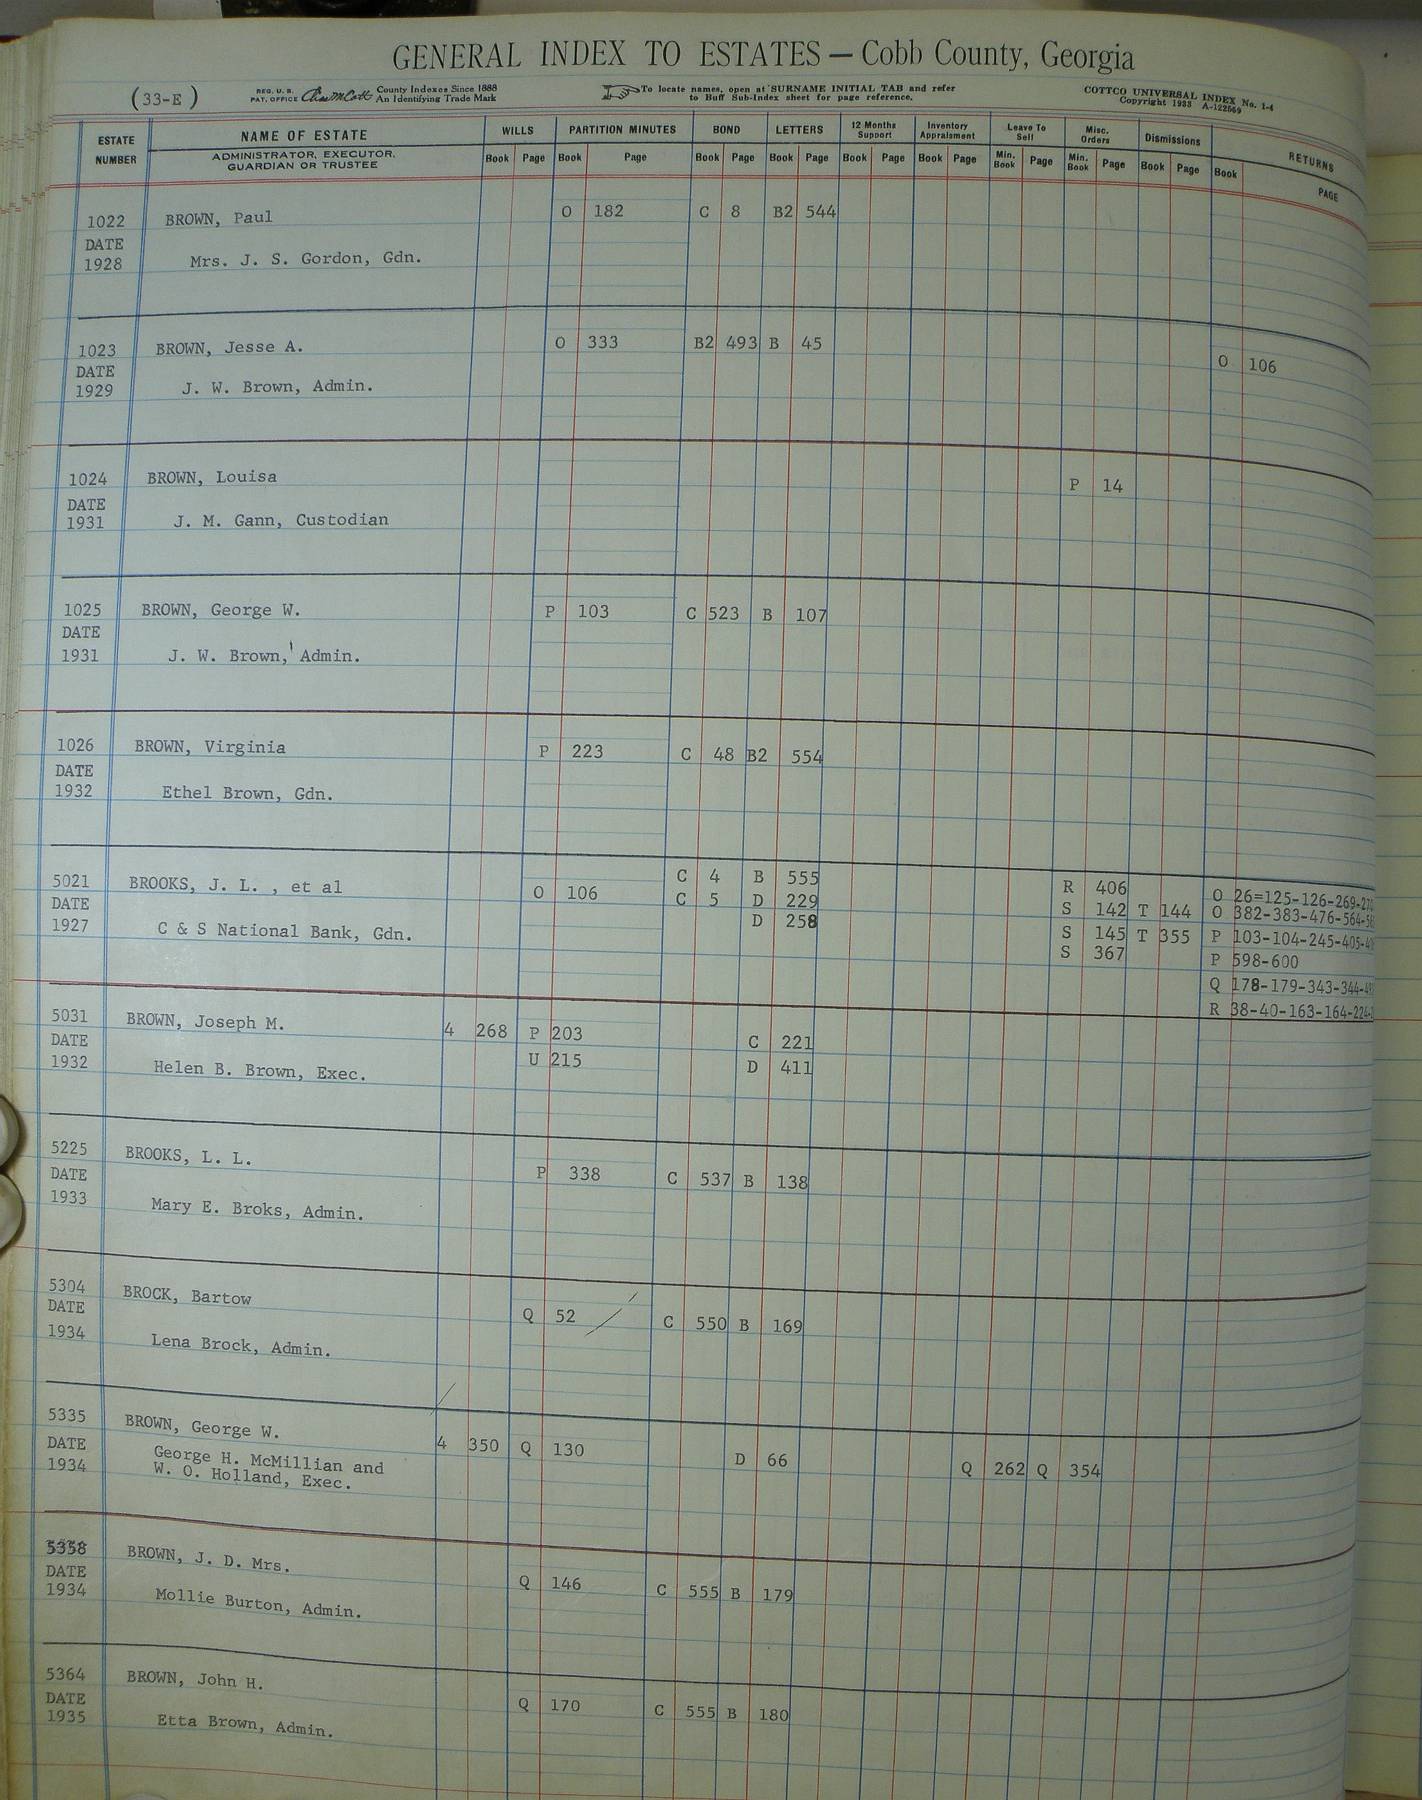 GENERAL INDEX TO ESTATES — Cobb County, Georgia
(33-E) REG. U. S. PAT. OFFICE County Indexes Since 1888 An Identifying Trade Mark To locate names, open at SURNAME INITIAL TAB and refer to Buff Sub-Index sheet for page reference. COTTCO UNIVERSAL INDEX No. 1-4 Copyright 1933 A-122569
ESTATE NUMBER NAME OF ESTATE WILLS PARTITION MINUTES BOND LETTERS 12 Months Support Inventory Appraisment Leave To Sell Misc. Orders Dismissions RETURNS
ADMINISTRATOR, EXECUTOR, GUARDIAN OR TRUSTEE Book Page Book Page Book Page Book Page Book Page Book Page Min. Book Page Min. Book Page Book Page Book PAGE
1022 BROWN, Paul O 182 C 8 B2 544
DATE
1928 Mrs. J. S. Gordon, Gdn.
1023 BROWN, Jesse A. O 333 B2 493 B 45
DATE O 106
1929 J. W. Brown, Admin.
1024 BROWN, Louisa P 14
DATE
1931 J. M. Gann, Custodian
1025 BROWN, George W. P 103 C 523 B 107
DATE
1931 J. W. Brown, Admin.
1026 BROWN, Virginia P 223 C 48 B2 554
DATE
1932 Ethel Brown, Gdn.
C 4 B 555
5021 BROOKS, J. L. , et al O 106 R 406 O 26=125-126-269-
DATE C 5 D 229 S 142 T 144 O 382-383-476-564-
1927 C & S National Bank, Gdn. D 258 S 145 T 355 P 103-104-245-405-
S 367 P 598-600
Q 178-179-343-344-
R 38-40-163-164-224-
5031 BROWN, Joseph M. 4 268 P 203 C 221
DATE U 215 D 411
1932 Helen B. Brown, Exec.
5225 BROOKS, L. L.
DATE P 338 C 537 B 138
1933 Mary E. Broks, Admin.
5304 BROCK, Bartow
DATE Q 52 C 550 B 169
1934 Lena Brock, Admin.
5335 BROWN, George W. 4 350 Q 130 D 66 Q 262 Q 354
DATE George H. McMillian and
1934 W. O. Holland, Exec.
5358 BROWN, J. D. Mrs.
DATE Q 146 C 555 B 179
1934 Mollie Burton, Admin.
5364 BROWN, John H.
DATE Q 170 C 555 B 180
1935 Etta Brown, Admin.